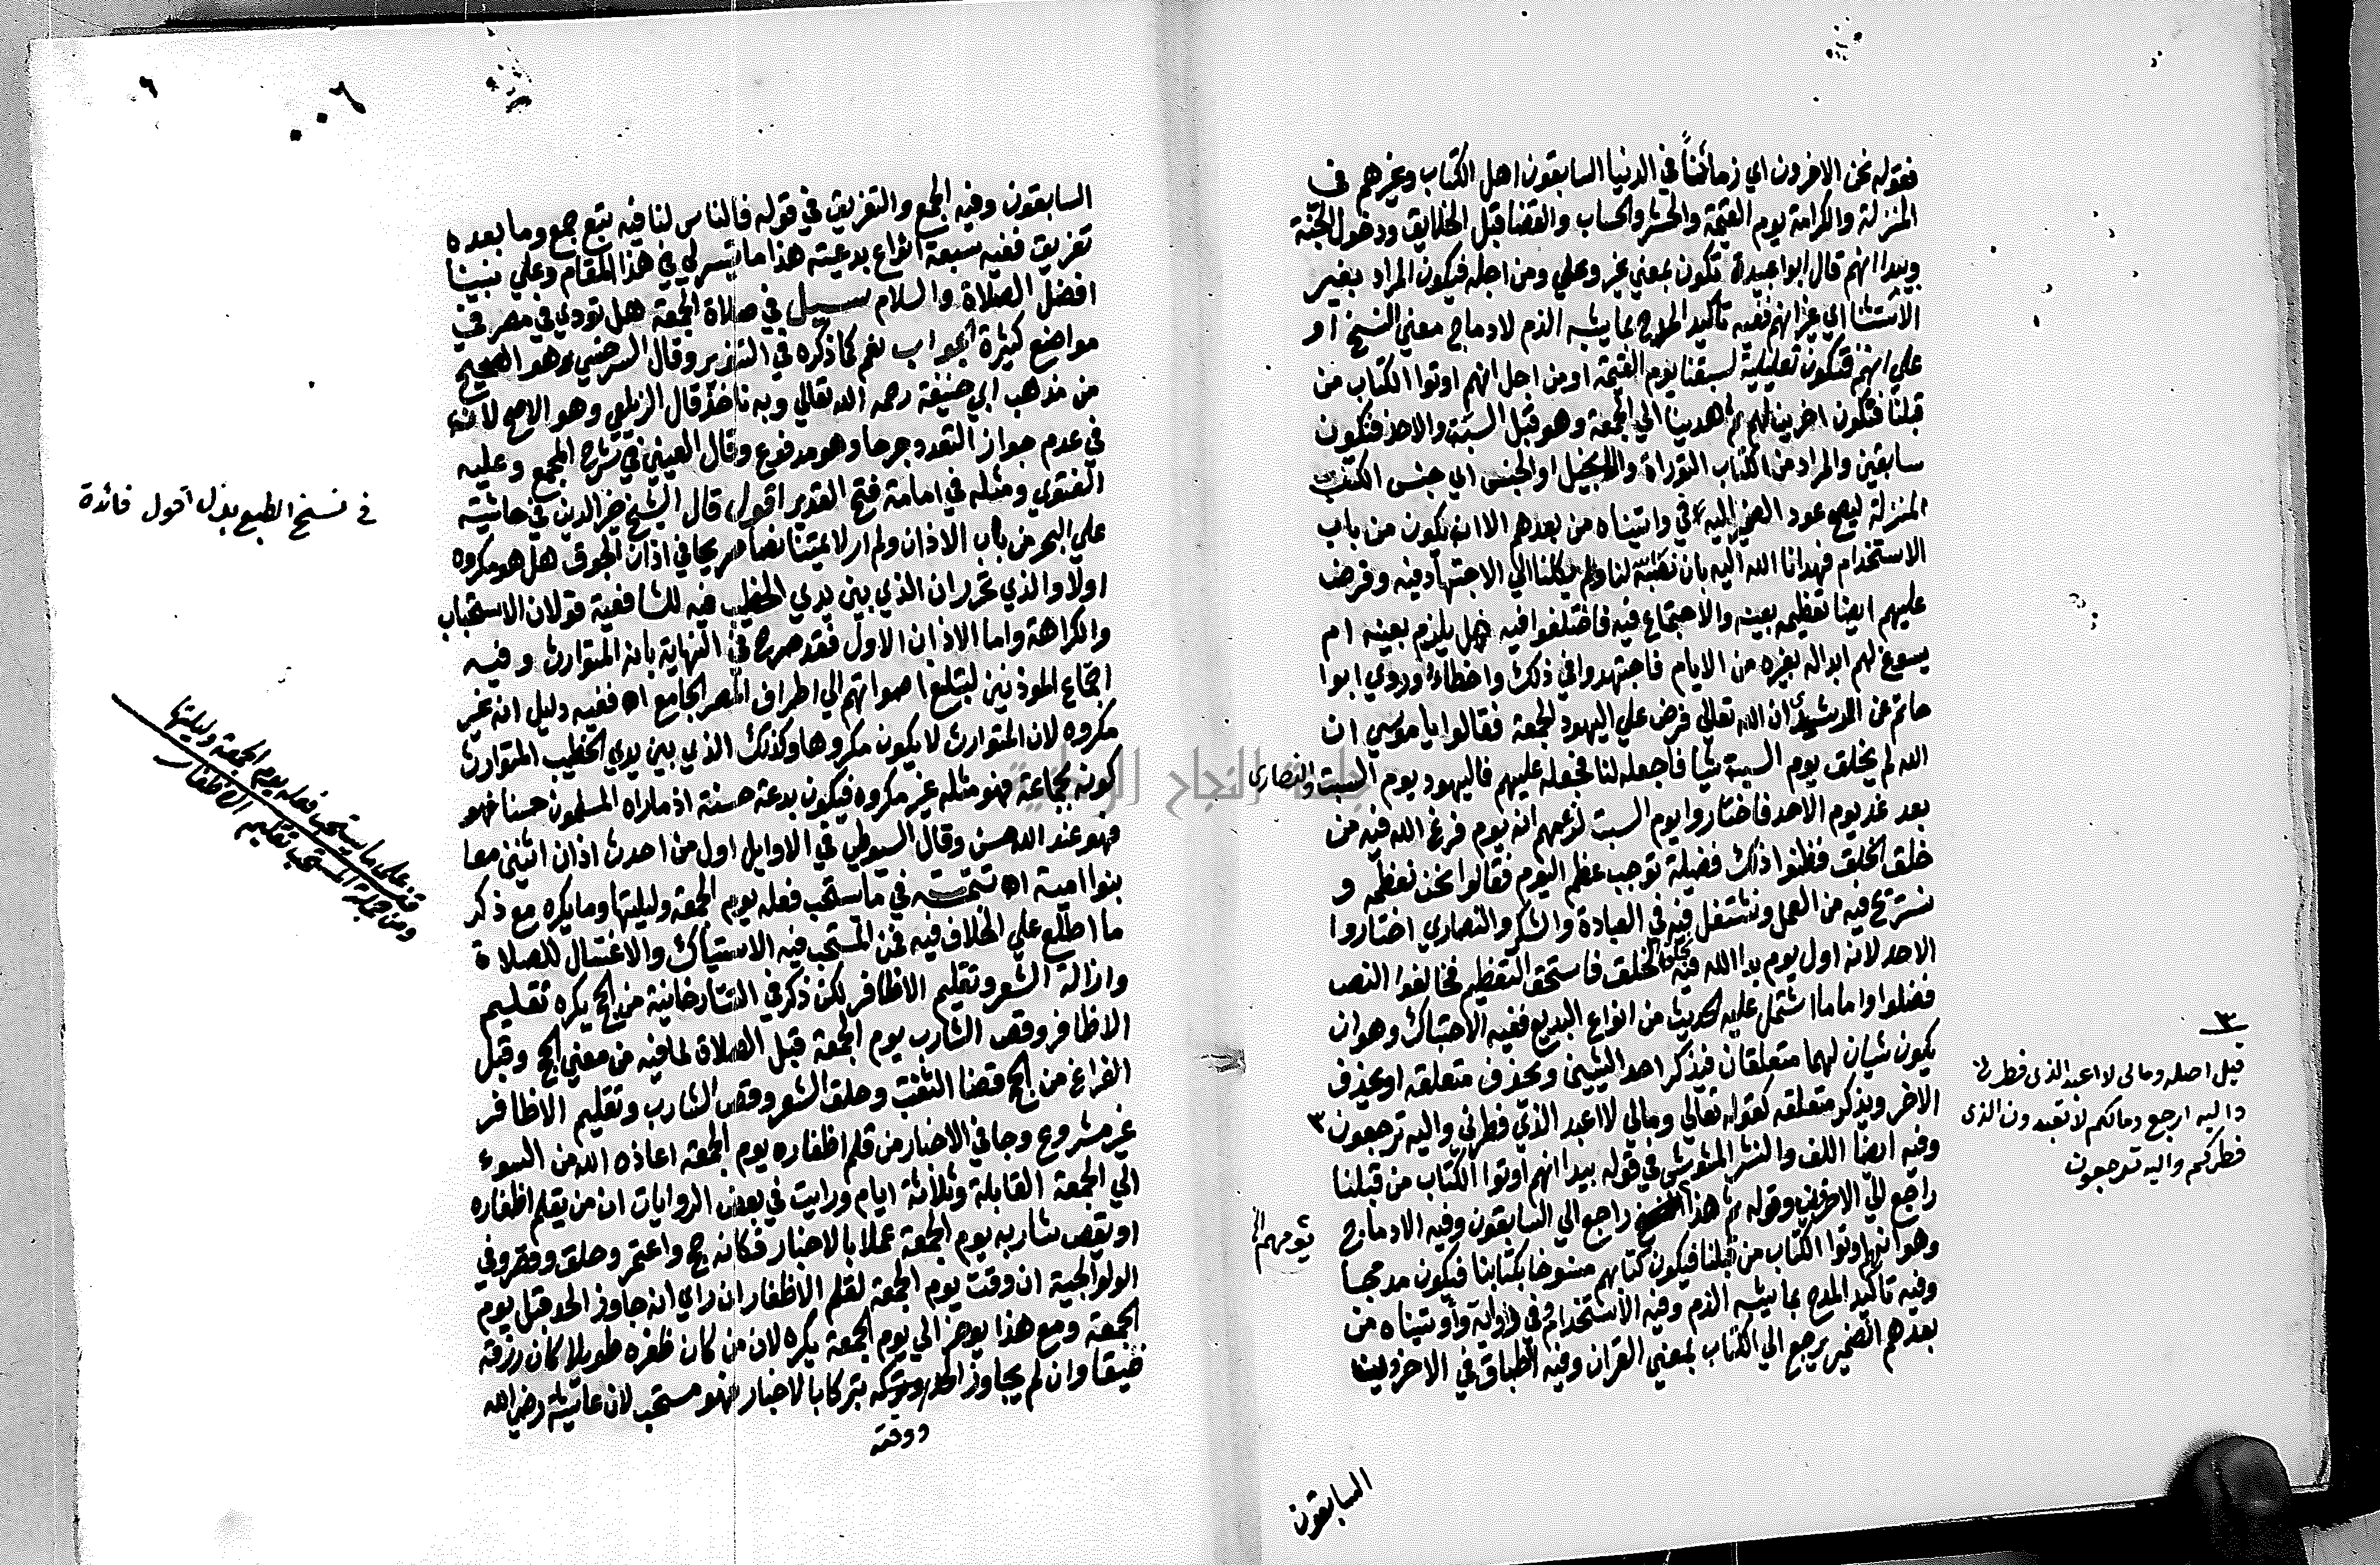 فقوله نحن الاخرون اي زماننا في الدنيا السابقون اهل الكتاب وغيرهم في
المنزلة والكرامة يوم القيمة والحشر والحساب والقضا قبل الخلايق ودخول الجنة
وبيدا انهم قال ابوا عبيدة تكون بمعني غير وعلي ومن اجله فيكون المراد بغير
الاستثنا اي غير انهم ففيه تاكيد المدح بما يشبه الذم لادماج معني النسخ او
علي انهم فتكون تعليلية لسبقنا يوم القيمة او من اجل انهم اوتوا الكتاب من
قبلنا فتكون اخرين لهم ثم هدينا الي الجمعة وهو قبل السبت والاحد فنكون
سابقين والمراد من الكتاب التوراة والانجيل او الجنس اي جنس الكتب
المنزلة ليصح عود الضمير اليه في واتيناه من بعدهم الا ان يكون من باب
الاستخدام فهدانا الله اليه بان نصبه لنا ولم يكلنا الي الاجتهاد فيه وفرض
عليهم ايضا تعظيمه بعينه والاجتماع فيه فاختلفوا فيه هل يلزم بعينه ام
يسوغ لهم ابداله بغيره من الايام فاجتهدوا في ذلك واخطاء وروي ابوا
حاتم عن ان الله تعالي فرض علي اليهود الجمعة فقالوا يا موسي ان
الله لم يخلق يوم السبت شيا فاجعله لنا فجعله عليهم فاليهود يوم السبت والنصاري
بعد غد يوم الاحد فاختاروا يوم السبت لزعمهم انه يوم فرغ الله فيه من
خلق الخلق فظنوا ذلك فضيلة توجب عظم اليوم فقالوا نحن نعظمه و
نستريح فيه من العمل ونشتغل فيه في العبادة والشكر والنصاري اختاروا
الاحد لانه اول يوم بدا الله فيه بخلق الخلق فاستحق التعظيم فخالفوا النص
فضلوا واما ما اشتمل عليه الحديث من انواع البديع ففيه الاحتباك وهو ان
يكون شيان لهما متعلقان فيذكر احد الشيئين ويحذف متعلقه او يحذف
الاخر ويذكر متعلقه كقوله تعالي ومالي لا اعبد الذي فطرني واليه ترجعون ٣
وفيه ايضا اللف والنشر المشوش في قوله بيدا انهم اوتوا الكتاب من قبلنا
راجع الي الاخرون وقوله ثم هذا يومهم الخ راجع الي السابقون وفيه الادماج
وهو انهم اوتوا الكتاب من قبلنا فيكون كتابهم منسوخا بكتابنا فيكون مدمجا
وفيه تاكيد المدح بما يشبه الذم وفيه الاستخدام في واوتيناه من
بعدهم الضمير يرجع الي الكتاب بمعني القران وفيه الطباق في الاخرون
السابقون
٣
قيل اصله ومالى لا اعبد الذى فطرنى
واليه ارجع ومالكم لا تعبدون الذى
فطركم واليه ترجعون
السابقون وفيه الجمع والتفريق في قوله فالناس لنا فيه تبع جمع وما بعده
تفريق ففيه سبعة انواع بدعيته هذا ما تيسر لي في هذا المقام وعلي نبينا
افضل الصلاة والسلام سيل في صلاة الجمعة هل تودي في مصر في
مواضع كثيرة الجواب نعم كما ذكره في التنوير وقال السرخسي وهو الصحيح
من مذهب ابي حنيفة رحمه الله تعالي وبه ناخذ قال الزيلعي وهو الاصح لان
في عدم جواز التعدد جرحا وهو مدفوع وقال العيني في شرح المجمع وعليه
الفتوي ومثله في امامة فتح القدير اقول قال الشيخ خير الدين في حاشيته
علي البحر من باب الاذان ولم ار لايمتنا نصا صريحا في اذان الجوق هل هو مكروه
اولا والذي تحرر ان الذي بين يدي الخطيب فيه للشافعية قولان الاستحباب
والكراهة واما الاذان الاول فقد صرح في النهاية بانه المتوارث وفيه
اجتماع الموذنين لتبلغ اصواتهم الي اطراف المصر الجامع اه ففيه دليل انه غير
مكروه لان المتوارث لا يكون مكروها وكذلك الذي بين يدي الخطيب المتوارث
كونه بجماعة فهو مثله غير مكروه فيكون بدعة حسنة اذ ما راه المسلمون حسنا فهو
فهو عند الله حسن وقال السيوطي في الاوايل اول من احدث اذان اثنين معا
بنوا امية اه تتمته في ما ستحب فعله يوم الجمعة وليلتها وما يكره مع ذكر
ما اطلع علي الخلاف فيه فمن المستحب فيه الاستياك والاغتسال للصلاة
وازالة الشعر وتقليم الاظافر لكن ذكر في التتارخانية من الحج يكره تقليم
الاظافر وقص الشارب يوم الجمعة قبل الصلاة لما فيه من معني الحج وقبل
الفراغ من الحج قضا التفث وحلق الشعر وقص الشارب وتقليم الاظافر
غير مشروع وجا في الاخبار من قلم اظفاره يوم الجمعة اعاذه الله من السوء
الي الجمعة القابلة وثلاثة ايام ورايت في بعض الروايات ان من يقلم اظفاره
او يقص شاربه يوم الجمعة عملا بالاخبار فكانه حج واعتمر وحلق وقصر وفي
الولوالجية ان وقت يوم الجمعة لقلم الاظفار ان راي انه جاوز الحد قبل يوم
الجمعة ومع هذا يوخر الي يوم الجمعة يكره لان من كان ظفره طويلا كان رزقه
ضيقا وان لم يجاوز الحد ووقته تبركا بالاخبار فهو مستحب لان عايشة رضي الله
ووقته
في نسخ الطبع بدل اقول فائدة
قف على ما يستحب فعله يوم الجمعة وليلتها
ومن جملة المستحب تقليم الاظفار
جامعة النجاح الوطنية